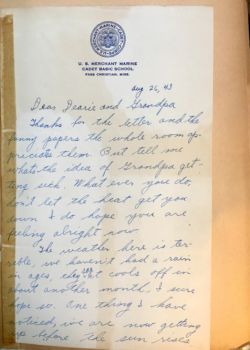 U. S. MERCHANT MARINE
CADET BASIC SCHOOL
PASS CHRISTIAN, MISS.
Aug 26, 43
Dear Dearie and Grandpa
Thanks for the letter and the
funny papers the whole room ap-
preciates them. But tell me
whats the idea of Grandpa get-
ting sick. What ever you do,
don't let the heat get you
down I do hope you are
feeling alright now.
The weather here is ter-
rible, we haven't had a rain
in ages, it cools off in
about another month. I sure
hope so. One thing I have
noticed, we are now getting
up before the sun rises